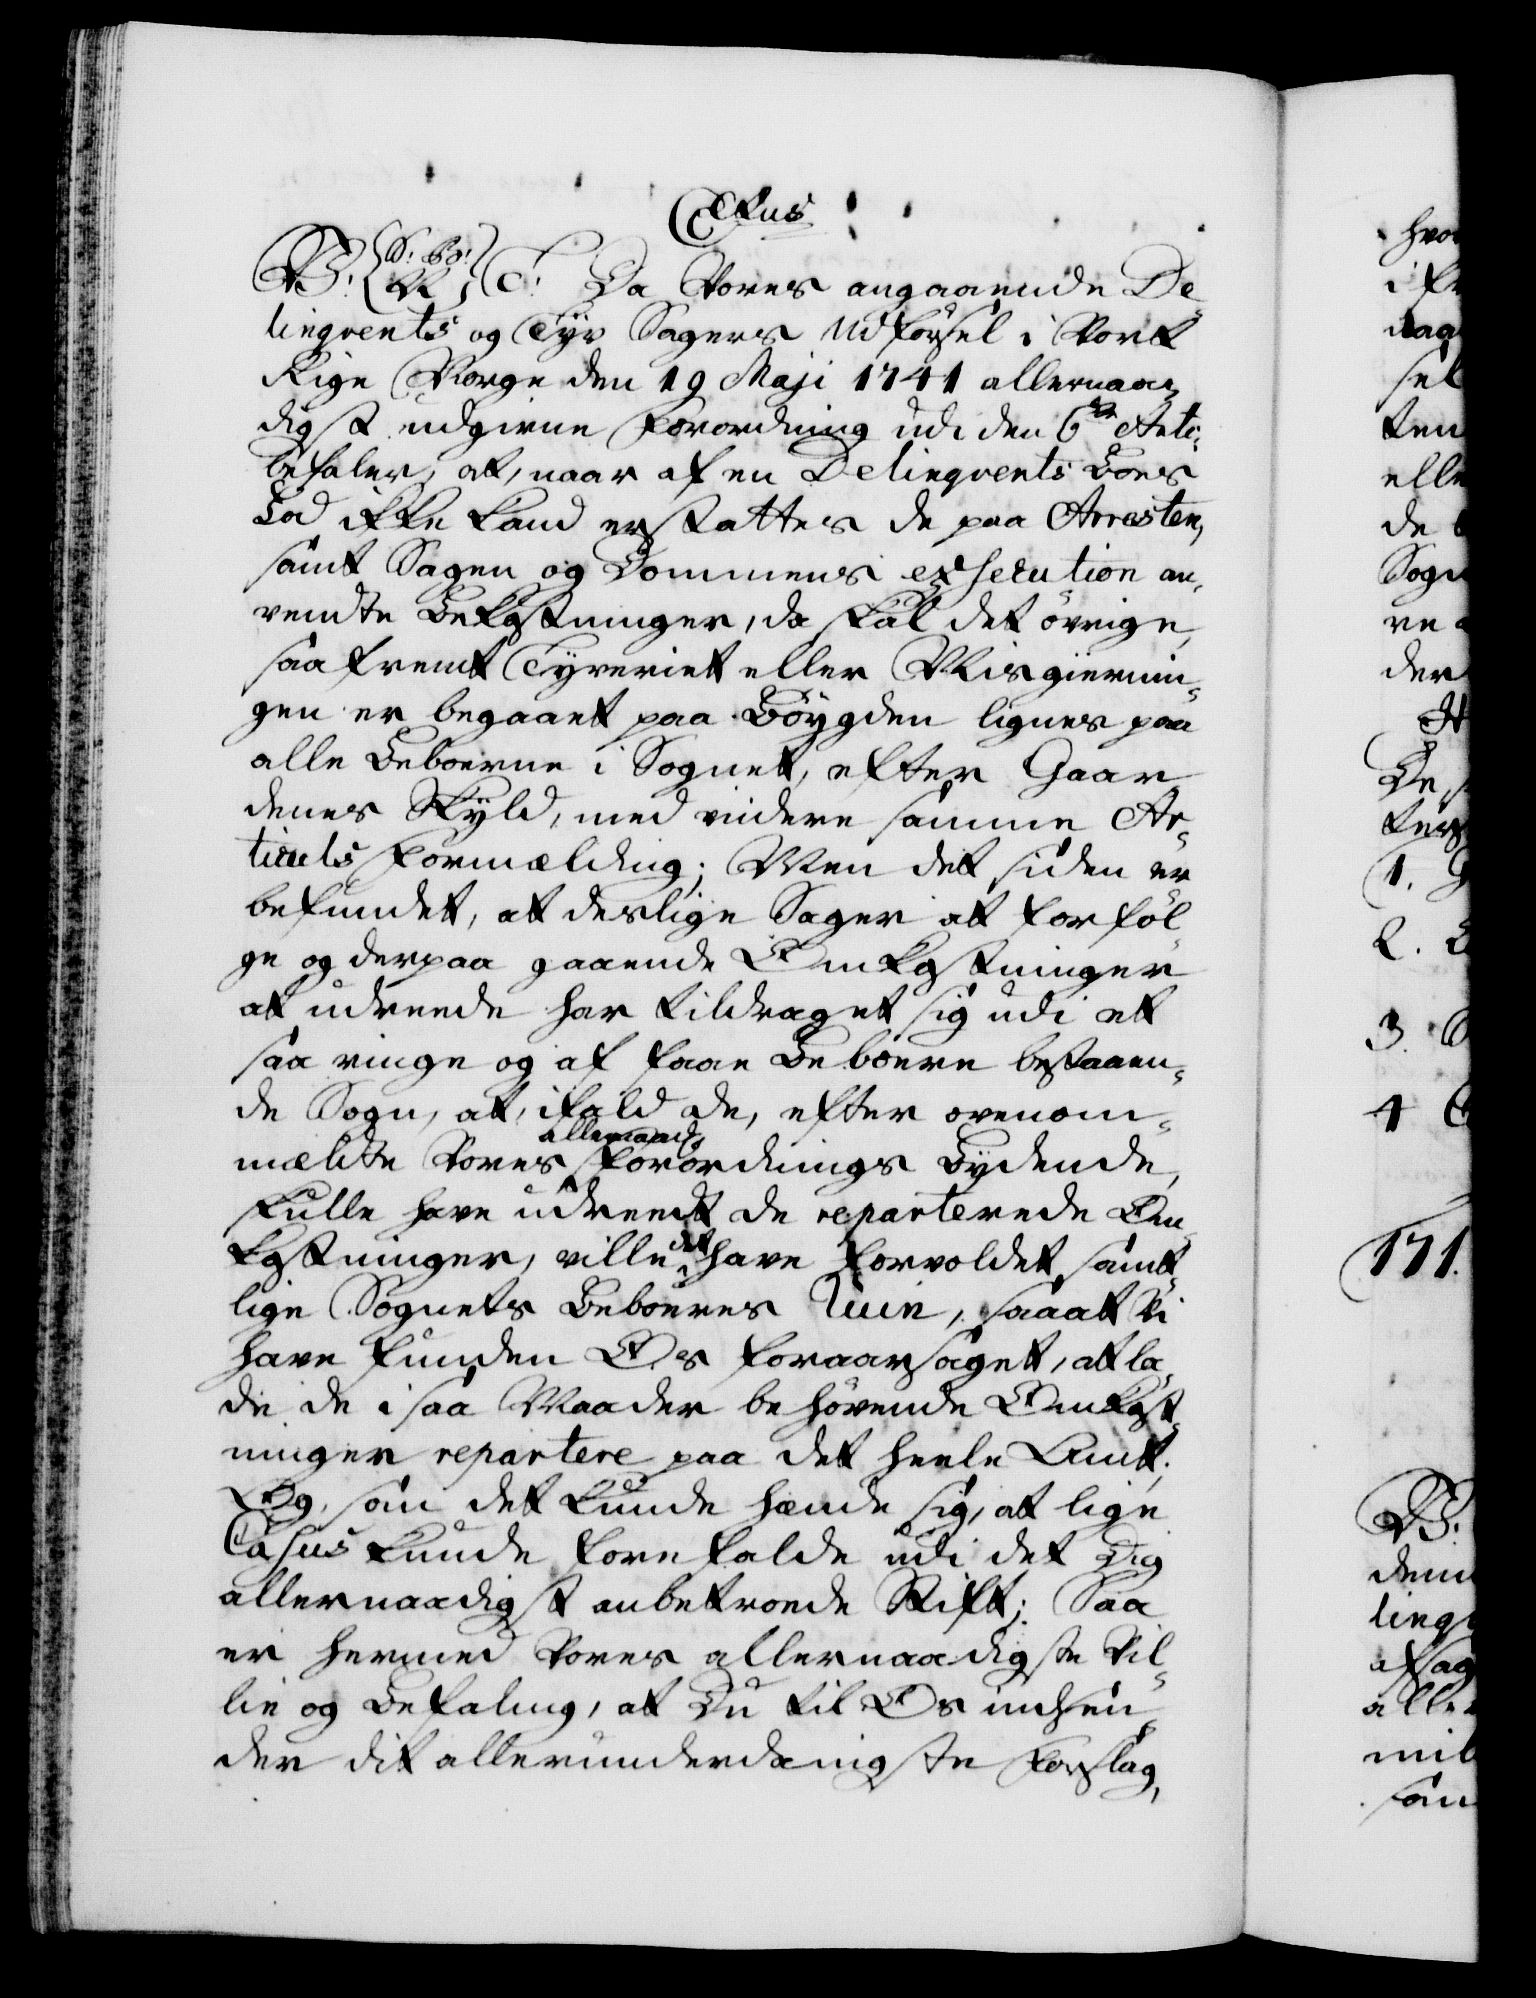 Cƶfus
V. {S: Bo: N} T. Da Vores angaaende De-
linqvents og Tyv Sagers Udförsel i Vort
Rige Norge den 19 Maji 1741 allernaa-
digst udgivne Forordning udi den 6te Arti:
befaler, at, naar af en Delinqvents Boes
Lod ikke kand erstattes de paa Arresten,
samt Sagen og Dommens exsecution an-
vendte Bekostninger, da skal det övrige,
saafremt Tyveriet eller Misgiernin-
gen er begaaet paa Böygden lignes paa
alle Beboerne i Sognet, efter Gaar-
denes Skyld, med videre samme Ar-
ticuls Formælding; Men det siden er
befundet, at deslige Sager at forföl-
ge og derpaa gaaende Omkostninger
at udreede har tildraget sig udi et
saa ringe og af faae Beboere bestaaen-
de Sogn, at, ifald de, efter ovenom-
mældte Vores allernaad: Forordnings Lydende,
skulle have udreedt de reparterede Om-
kostninger, ville det have forvoldet samt-
lige Sognets Beboeres Ruin, saaat Vi
have funden Os foraarsaget, at la-
de de i saa Maader behövende Omkost-
ninger repartere paa det heele Amt;
Og, som det kunde hænde sig, at lige
Casus kunde forefalde udi det Dig
allernaadigst anbetroede Stift; Saa
er hermed Vores allernaadigste Vil-
lie og Befaling, at Du til Os indsen-
der dit allerunderdanigste Forslag,
171.